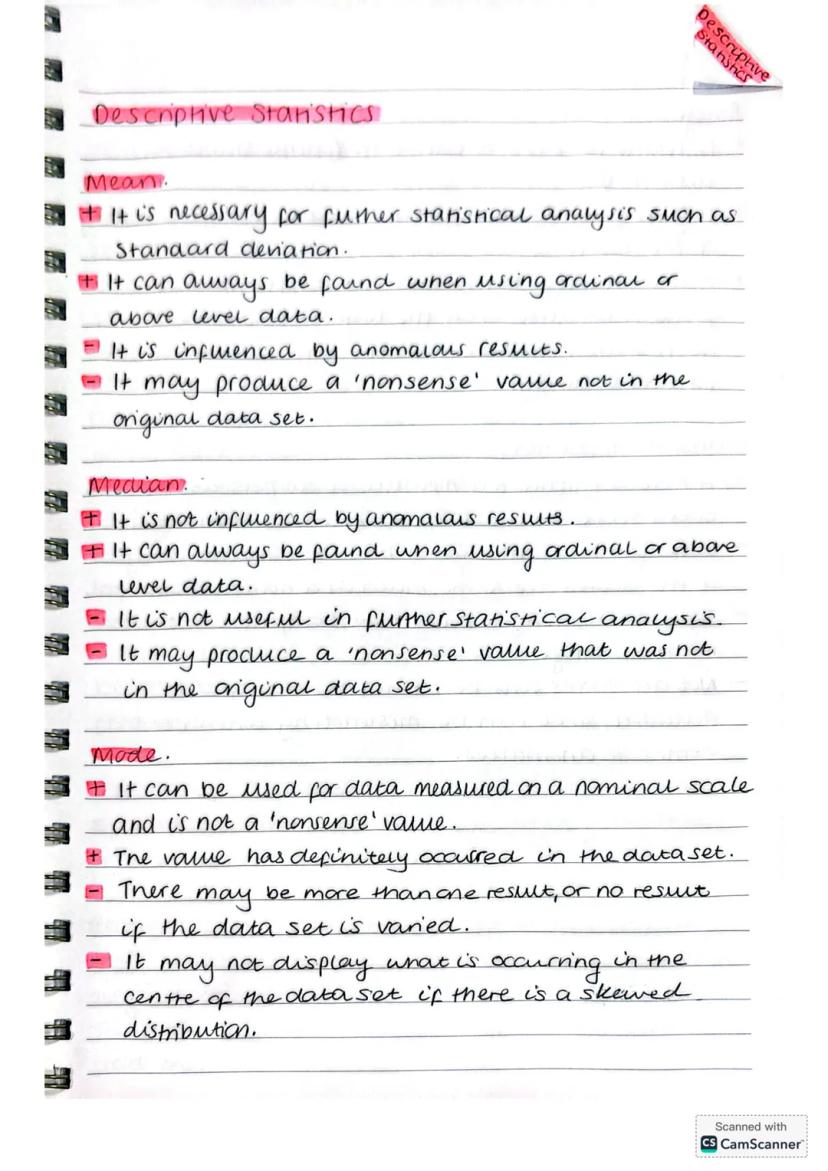 Descriptive
Statistics
Descriptive Statistics
Mean.
+ It is necessary for further statistical analysis such as
standard deviation.
+ It can always be found when using ordinal or
above level data.
- It is influenced by anomalous results.
- It may produce a 'nonsense' value not in the
original data set.
Median.
+ It is not influenced by anomalous results.
+ It can always be found when using ordinal or above
level data.
- It is not useful in further statistical analysis.
- It may produce a 'nonsense' value that was not
in the original data set.
Mode.
+ It can be used for data measured on a nominal scale
and is not a 'nonsense' value.
+ The value has definitely occurred in the data set.
- There may be more than one result, or no result
if the data set is varied.
- It may not display what is occurring in the
centre of the data set if there is a skewed
distribution.
Scanned with
CS CamScanner